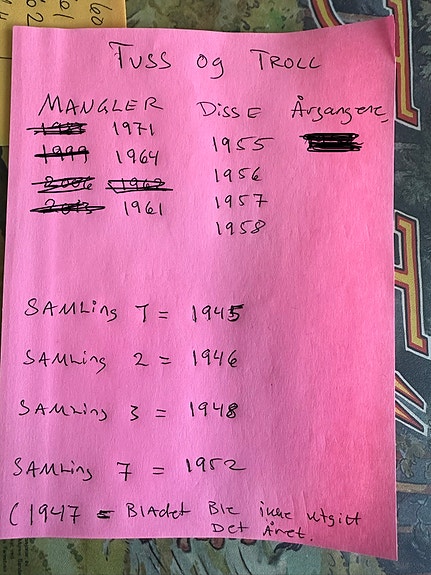 Tuss og Troll
Mangler Disse Årgangene.
1971 1955
1964 1956
1961 1957
1958
Samling 1 = 1945
Samling 2 = 1946
Samling 3 = 1948
Samling 7 = 1952
(1947 = Bladet Ble ikke utgitt
Det Året.